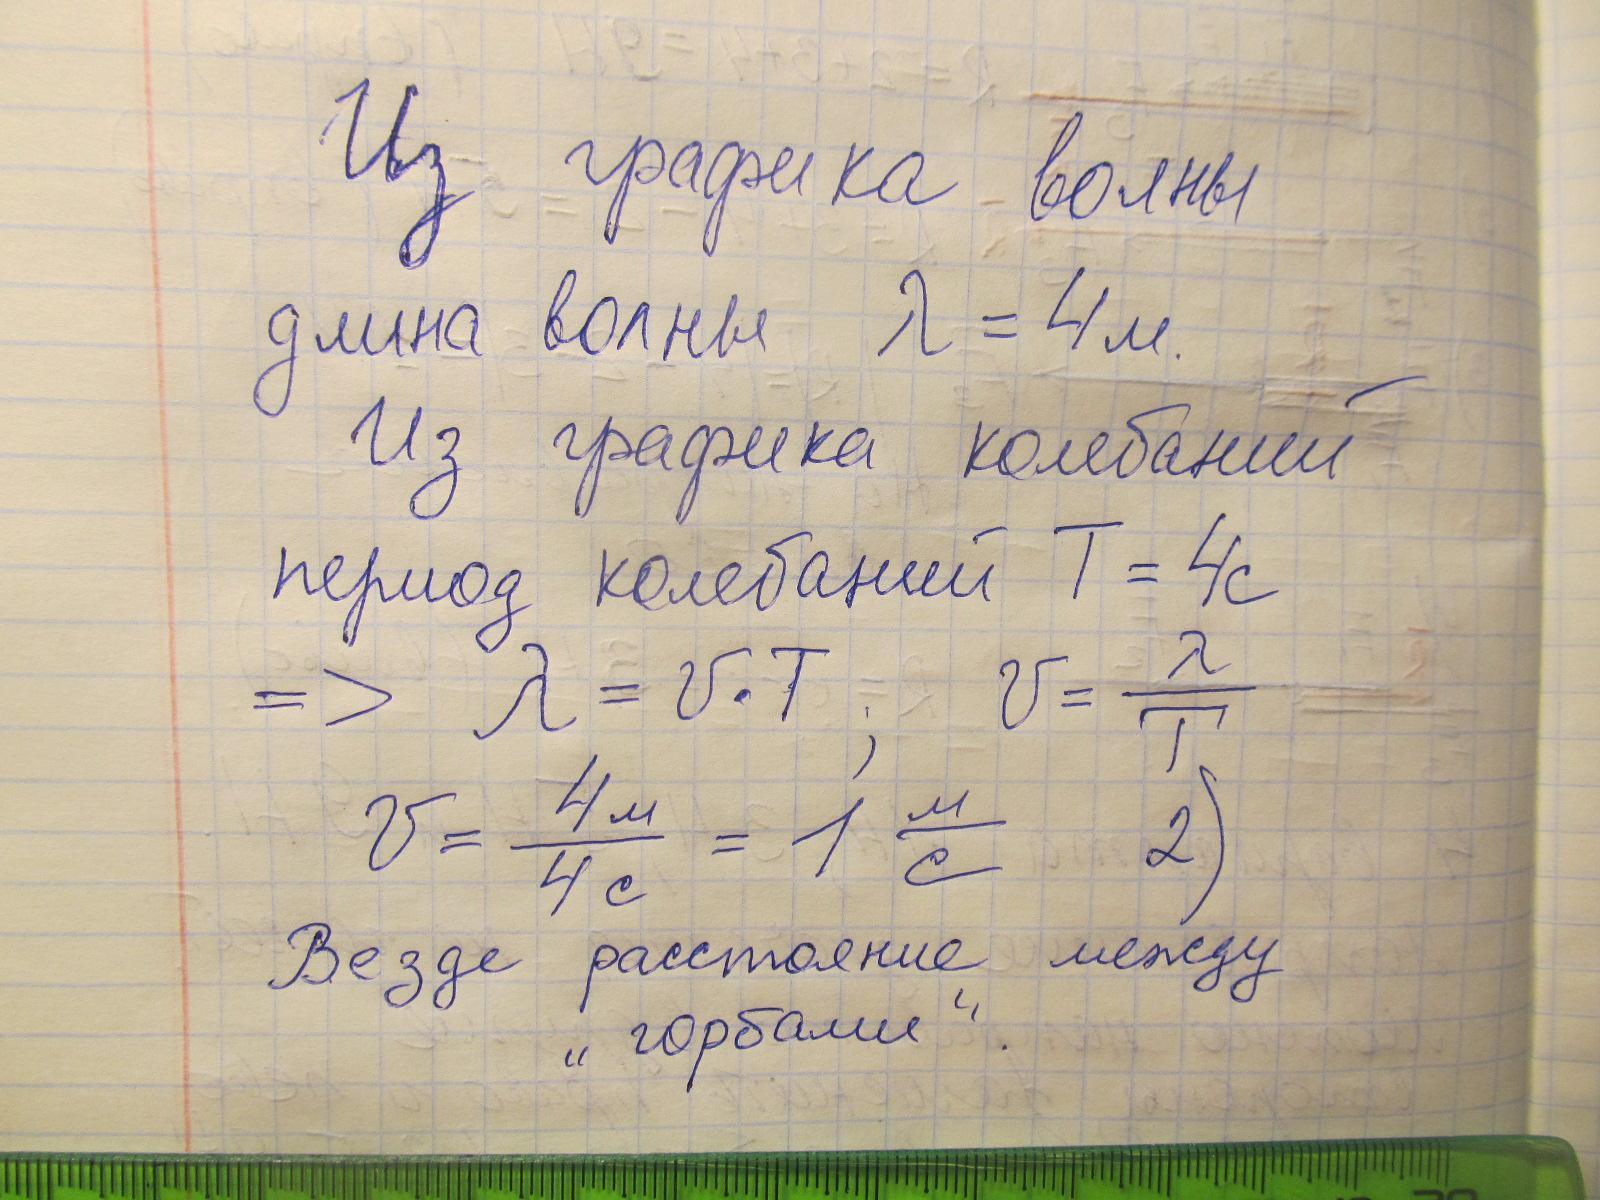 Из графика волны
длина волны λ = 4 м.
Из графика колебаний
период колебаний T = 4с
=> λ = v·T ; v = λ/T
v = 4м/4с = 1 м/с 2)
Везде расстояние между
„горбами“.